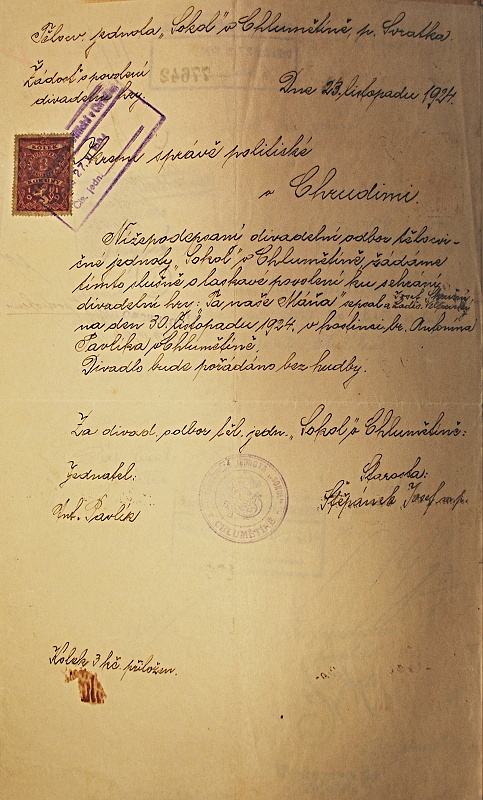 Tělocv. jednota „Sokol" v Chlumětíně p. Svratka.
77642
Žádost o povolení
divadelní hry.
Dne 23. listopadu 1924.
KOLEK
3
27. XI. 1924
Čís. jedn.
Okresní správě politické
v Chrudimi.
Nížepodepsaní divadelní odbor tělocvi-
čné jednoty „Sokol" v Chlumětíně, žádáme
tímto slušně o laskavé povolení ku sehrání
divadelní hry: „Ta naše Máňa" sepsal Josef
na den 30. listopadu 1924. v hostinci br. Antonína
Pavlíka v Chlumětíně.
Divadlo bude pořádáno bez hudby.
Za divad. odbor těl. jedn. „Sokol" v Chlumětíně:
Jednatel:
Starosta:
Ant. Pavlík
Štěpánek Josef
CHLUMĚTÍN
Kolek 3 kč. přiložen.